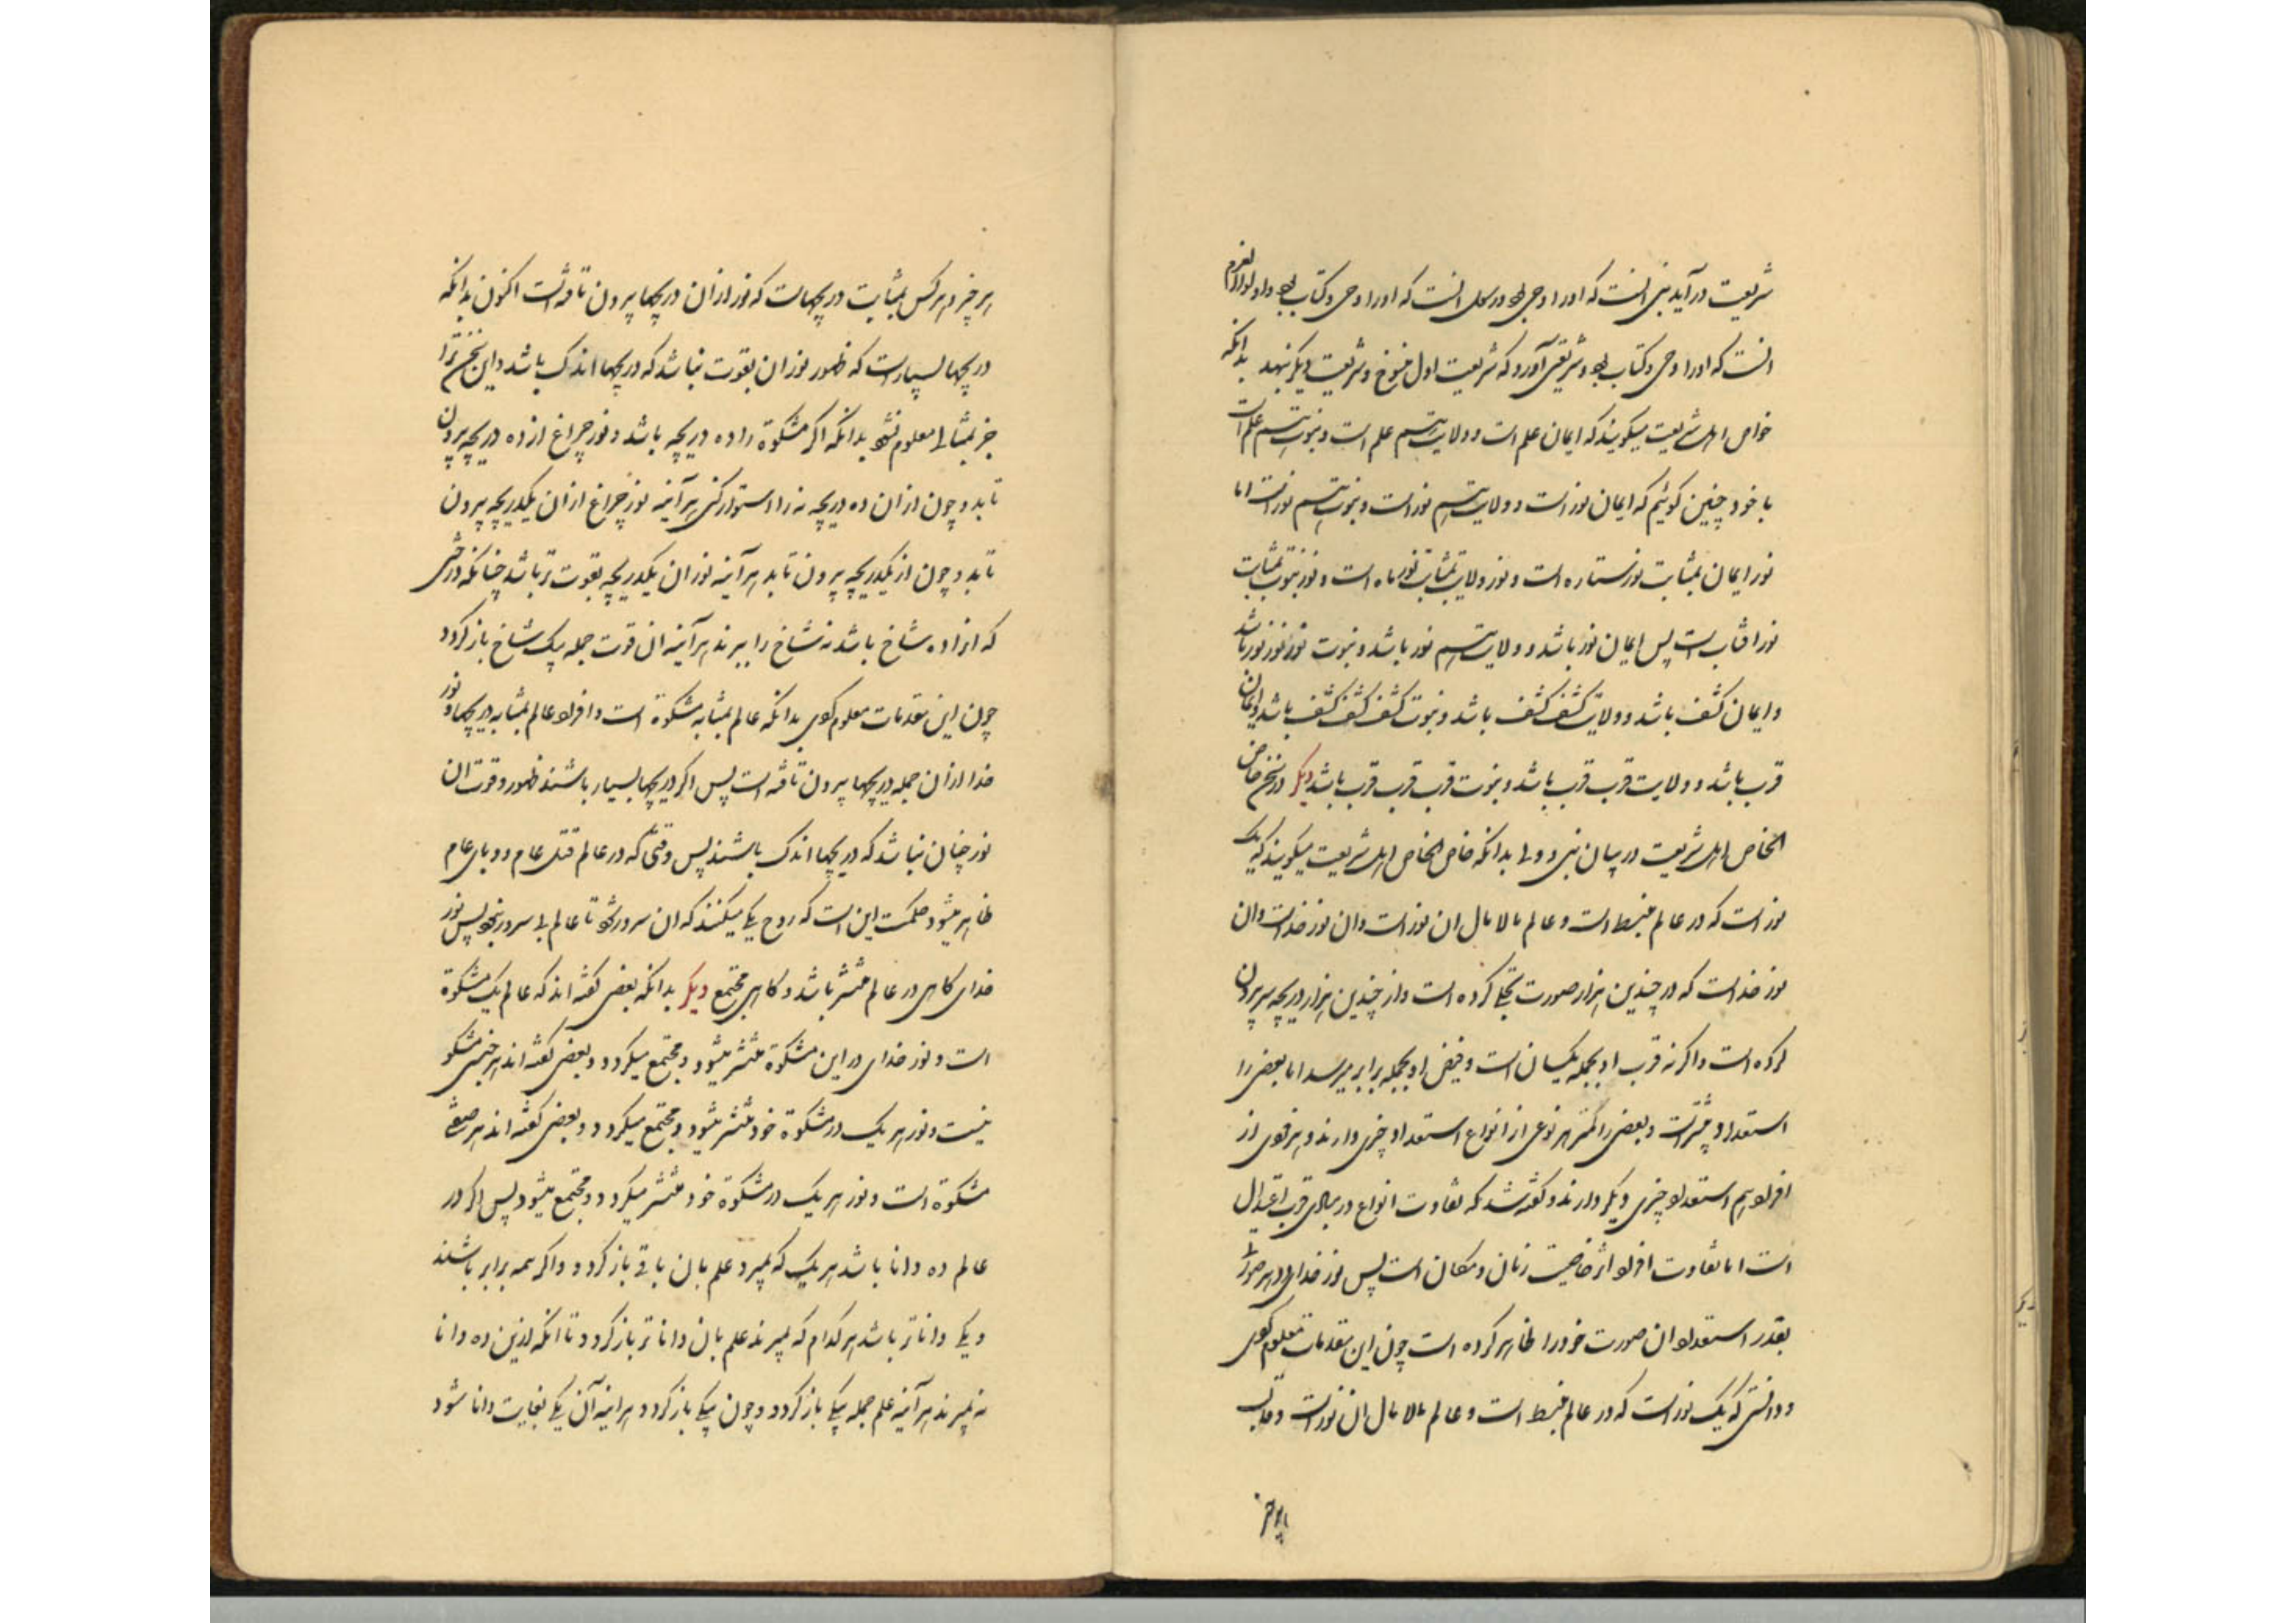 شریعت درآید نبی انست که او را وحی بود و رسول انست که او را وحی و کتاب بود و اولوالعزم
انست که او را وحی و کتاب بود و شریعتی آورد که شریعت اول منسوخ و شریعت دیگر بنهد بدانکه
خواص اهل شریعت میگویند که ایمان علم است و ولایت قسم علم است و نبوت قسم علم است
با خود چنین گوئیم که ایمان نور است و ولایت قسم نور است و نبوت قسم نور است اما
نور ایمان بمثابت نور ستاره است و نور ولایت بمثابت نور ماه است و نور نبوت بمثابت
نور افتاب است پس ایمان نور باشد و ولایت قسم نور باشد و نبوت نور نور نور باشد
و ایمان کشف باشد و ولایت کشف کشف باشد و نبوت کشف کشف کشف باشد و ایمان
قرب باشد و ولایت قرب قرب باشد و نبوت قرب قرب قرب باشد دیگر در سخن خاص
الخاص اهل شریعت در بیان نبی و ولی بدانکه خاص الخاص اهل شریعت میگویند که یک
نور است که در عالم منبسط است و عالم مالامال ان نور است و ان نور خداست و ان
نور خداست که در چندین هزار صورت تجلی کرده است و از چندین هزار دریچه سر بیرون
کرده است و اگر نه قرب او بجمله یکسان است و فیض او بجمله برابر میرسد اما بعضی را
استعداد بیشتر است و بعضی را کمتر هر نوعی از انواع استعداد چیزی دارند و هر فردی از
افراد هم استعداد چیزی دیگر دارند و گفته شد که تفاوت انواع در مبادی قرب اعتدال
است اما تفاوت افراد اثر خاصیت زمان و مکان است پس نور خدای در هر صورتی
بقدر استعداد ان صورت خود را ظاهر کرده است چون این مقدمات معلوم کردی
و دانستی که یک نور است که در عالم منبسط است و عالم مالامال ان نور است
هر چیز
هر چیز و هر کس بمثابت دریچهاست که نور از ان دریچها بیرون تافته است اکنون بدانکه
دریچها بسیار است که ظهور نور ان بقوت نباشد که دریچها اندک باشد و این سخن ترا
جز بمثالی معلوم نشود بدانکه اگر مشکوة را ده دریچه باشد و نور چراغ از ده دریچه بیرون
تابد و چون از ان ده دریچه نه را استوار کنی هر آینه نور چراغ از ان یکدریچه بیرون
تابد و چون از یکدریچه بیرون تابد هر آینه نور ان یکدریچه بقوت تر باشد چنانکه درختی
که او را ده شاخ باشد نه شاخ را ببرند هر آینه ان قوت جمله بیک شاخ بازگردد
چون این مقدمات معلوم کردی بدانکه عالم بمثابه مشکوة است و افراد عالم بمثابه دریچها و نور
خدا از ان جمله دریچها بیرون تافته است پس اگر دریچها بسیار باشند ظهور و قوت ان
نور چنان نباشد که دریچها اندک باشند پس وقتی که در عالم قتل عام و وبای عام
ظاهر میشود حکمت این است که روح یکی میکنند که ان سرور شود تا عالم بی سرور نبود پس نور
خدای کاهی در عالم منتشر باشد و کاهی مجتمع دیگر بدانکه بعضی گفته اند که عالم یک مشکوة
است و نور خدای در این مشکوة منتشر میشود و مجتمع میگردد و بعضی گفته اند هر جنسی مشکو
نیست و نور هر یک در مشکوة خود منتشر میشود و مجتمع میگردد و بعضی گفته اند هر صنفی
مشکوة است و نور هر یک در مشکوة خود منتشر میگردد و مجتمع میشود پس اگر در
عالم ده دانا باشد هر یک که بمیرد علم بان باقی بازگردد و اگر همه برابر باشند
و یکی داناتر باشد هر کدام که بمیرند علم بان داناتر بازگردد تا انکه ازین ده دانا
نه بمیرند هر آینه علم جمله بیکی بازگردد و چون بیکی بازگردد هر اینه آن یکی بغایت دانا شود